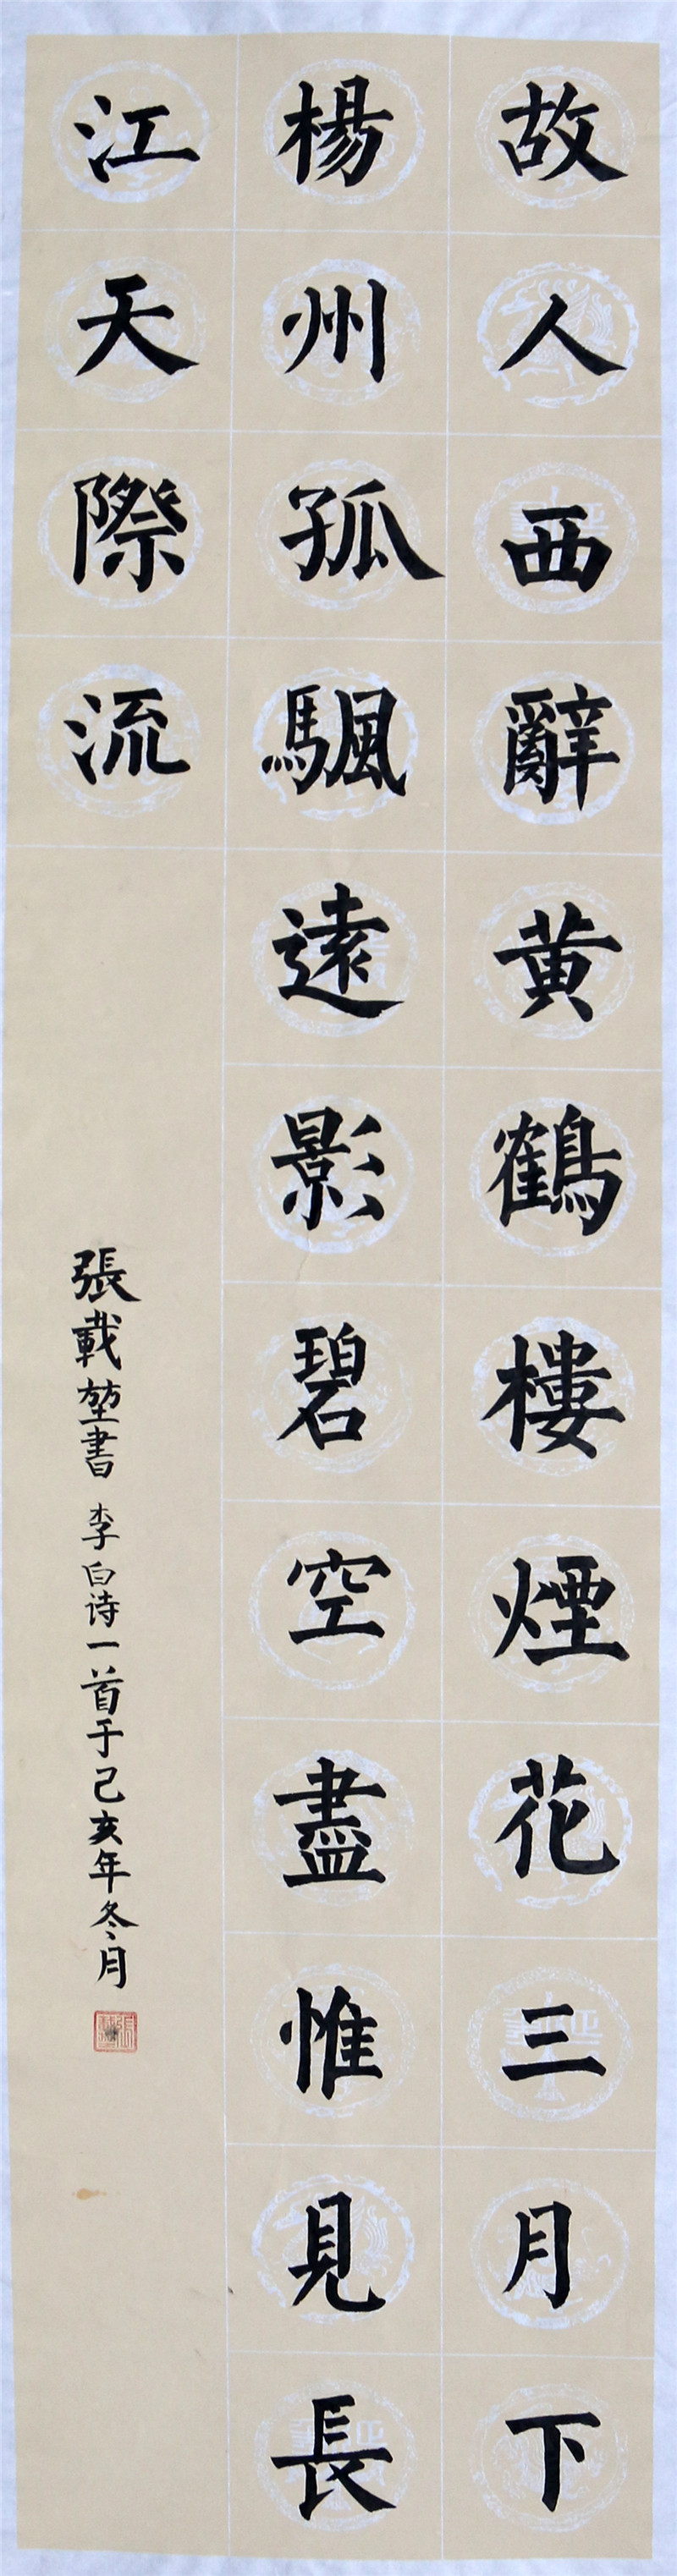 故人西辭黄鶴樓煙花三月下
楊州孤颿遠影碧空盡惟見長
江天際流
張載堃書 李白诗一首于己亥年冬月